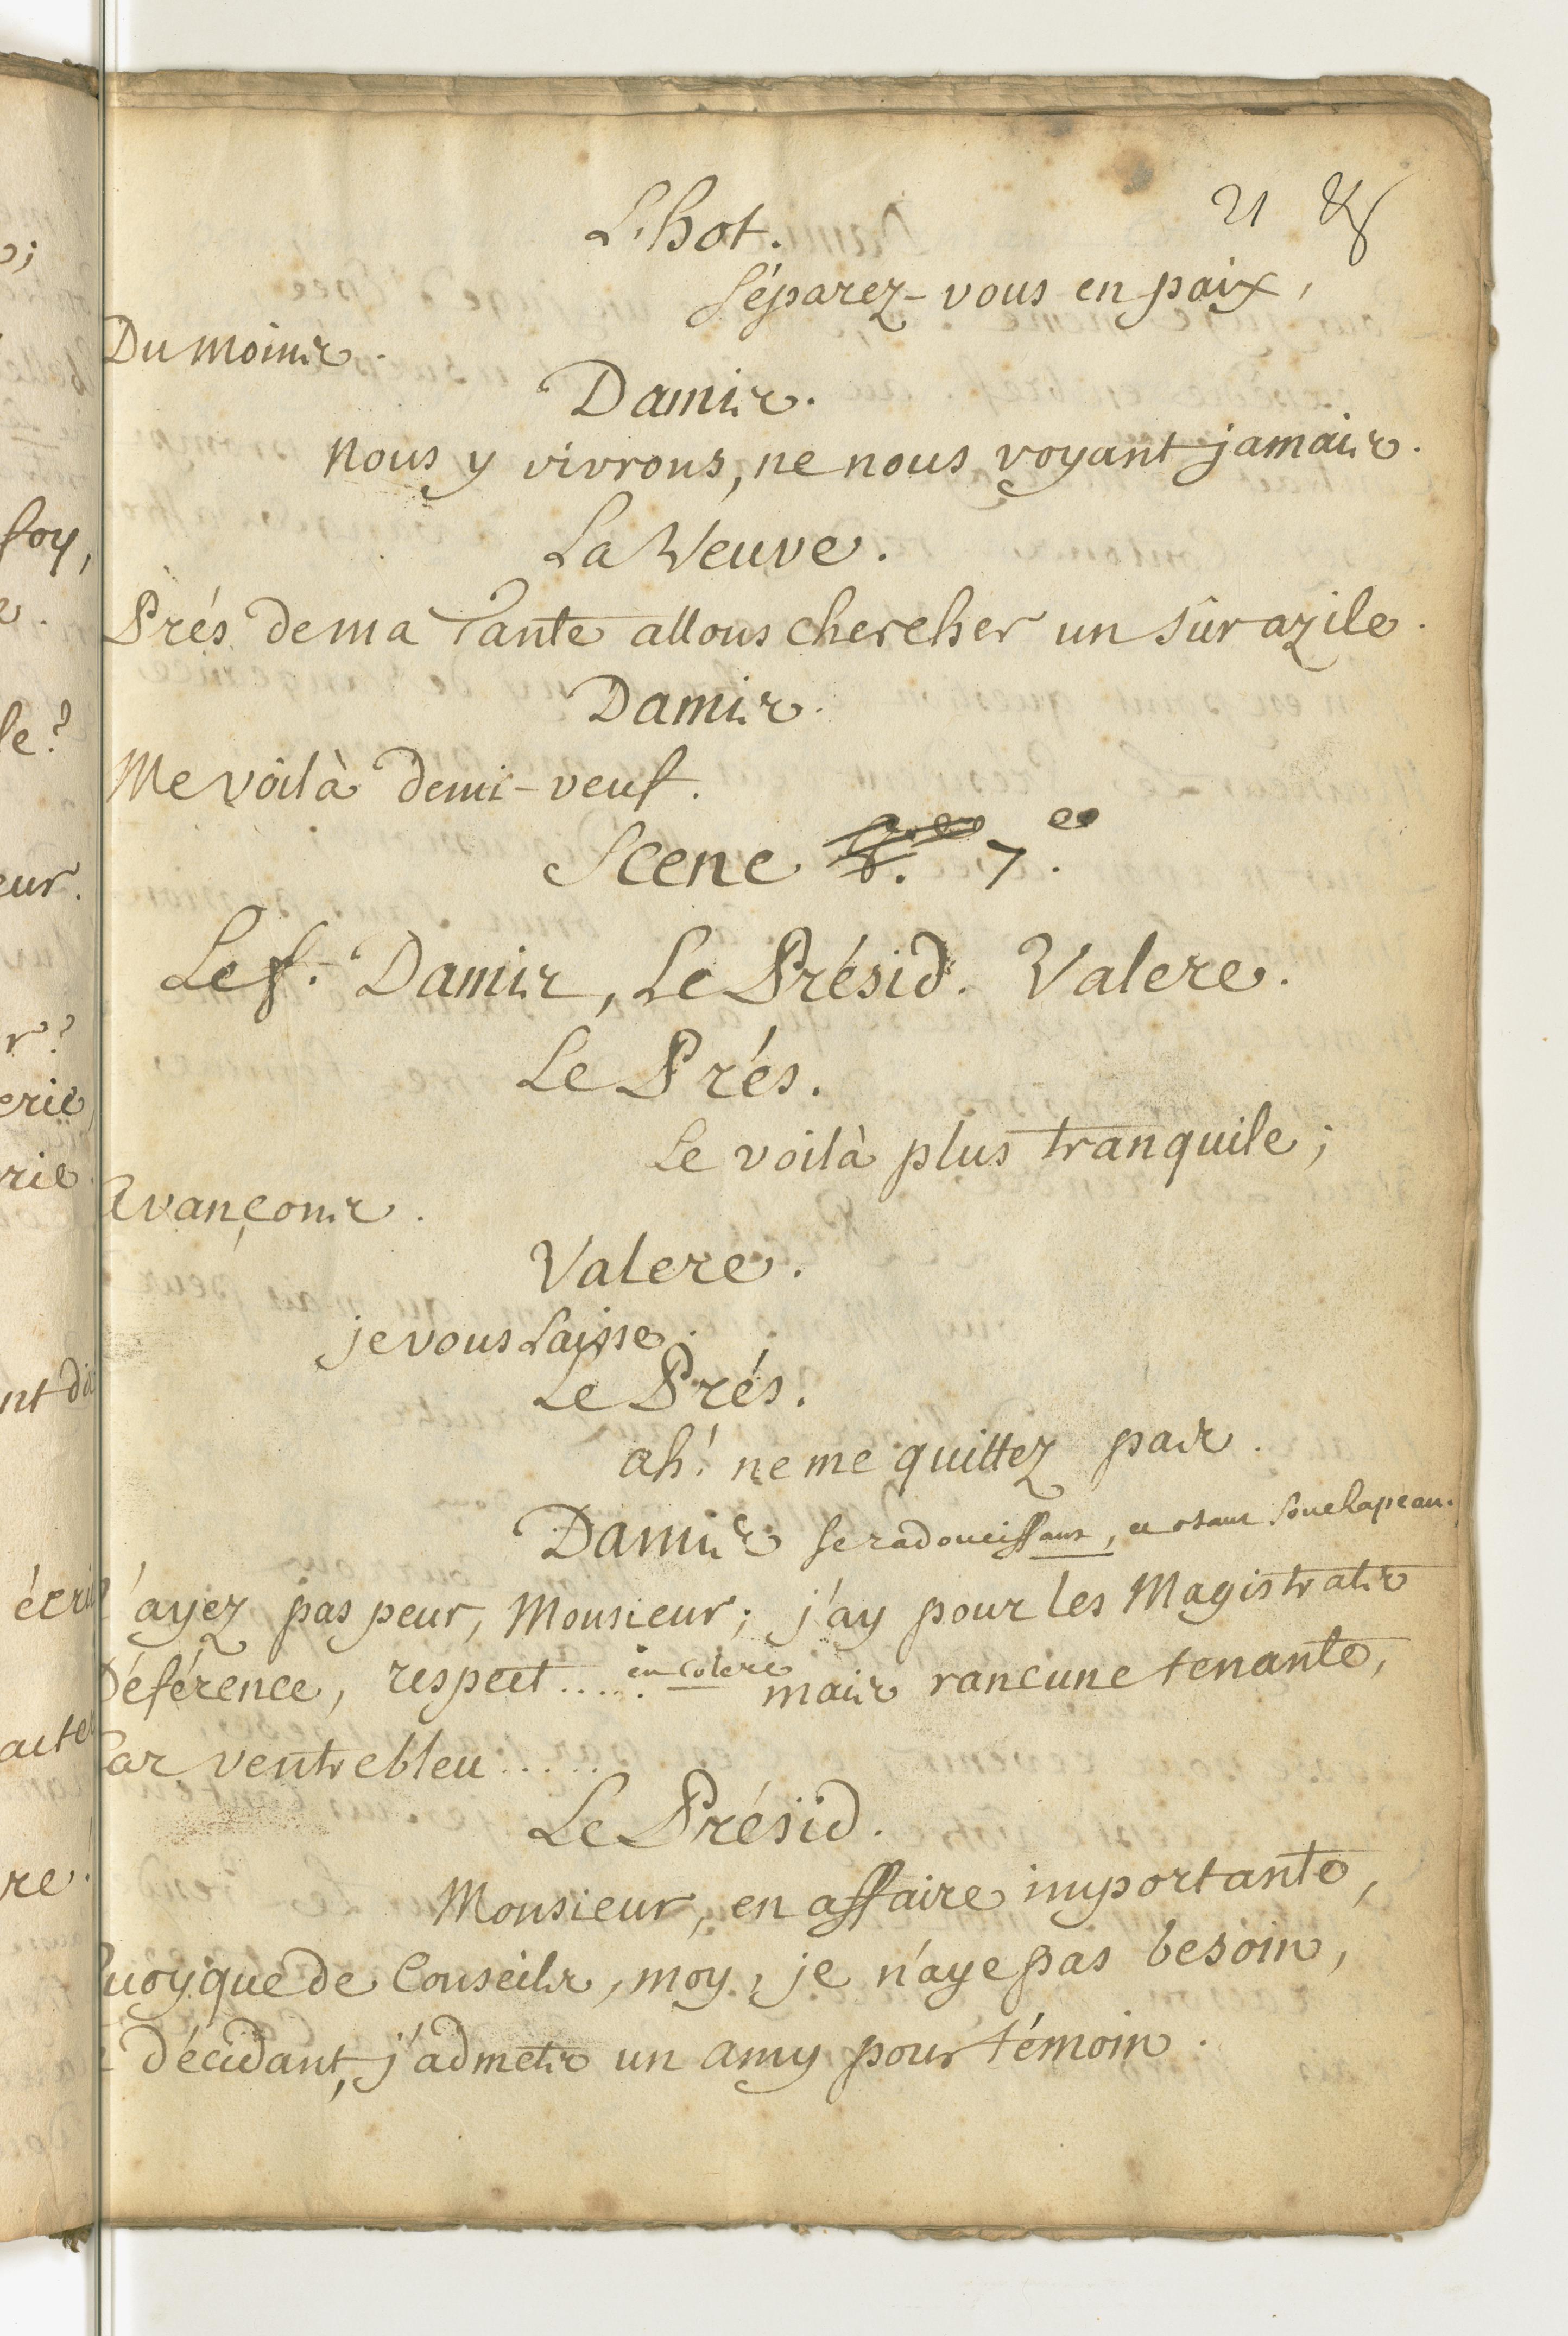 21
L'hot.
Séparez-vous en paix,
Du moins.
Damis.
Nous y vivrons, ne nous voyant jamais.
La Veuve.
Prés de ma Tante allons chercher un sûr azile.
Damis.
Me voilà demi-veuf.
Scene 7.e
Le f. Damis, Le Présid. Valere.
Le Prés.
Le voilà plus tranquile;
Avançons.
Valere.
je vous Laisse.
Le Prés.
ah! ne me quittez pas.
Damis se radoucissant, et otant son chapeau.
'ayez pas peur, Monsieur; j'ay pour les Magistrats
Déférence, respect..... en colere mais rancune tenante,
Par ventrebleu.....
Le Présid.
Monsieur, en affaire importante,
Quoyque de Conseils, moy, je n'aye pas besoin,
décidant, j'admets un amy pour témoin.